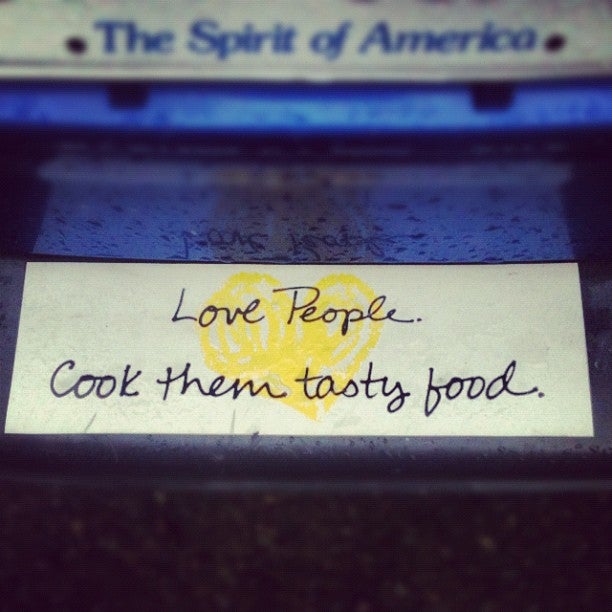 The Spirit of America
Love People.
Cook them tasty food.